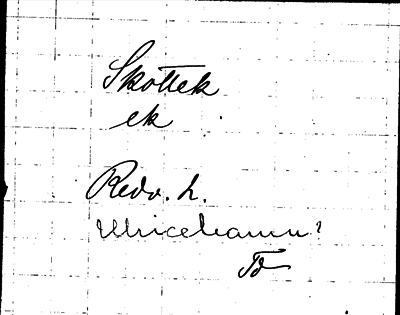 Skottek
ek
Redv. L.
Ulricehamn?